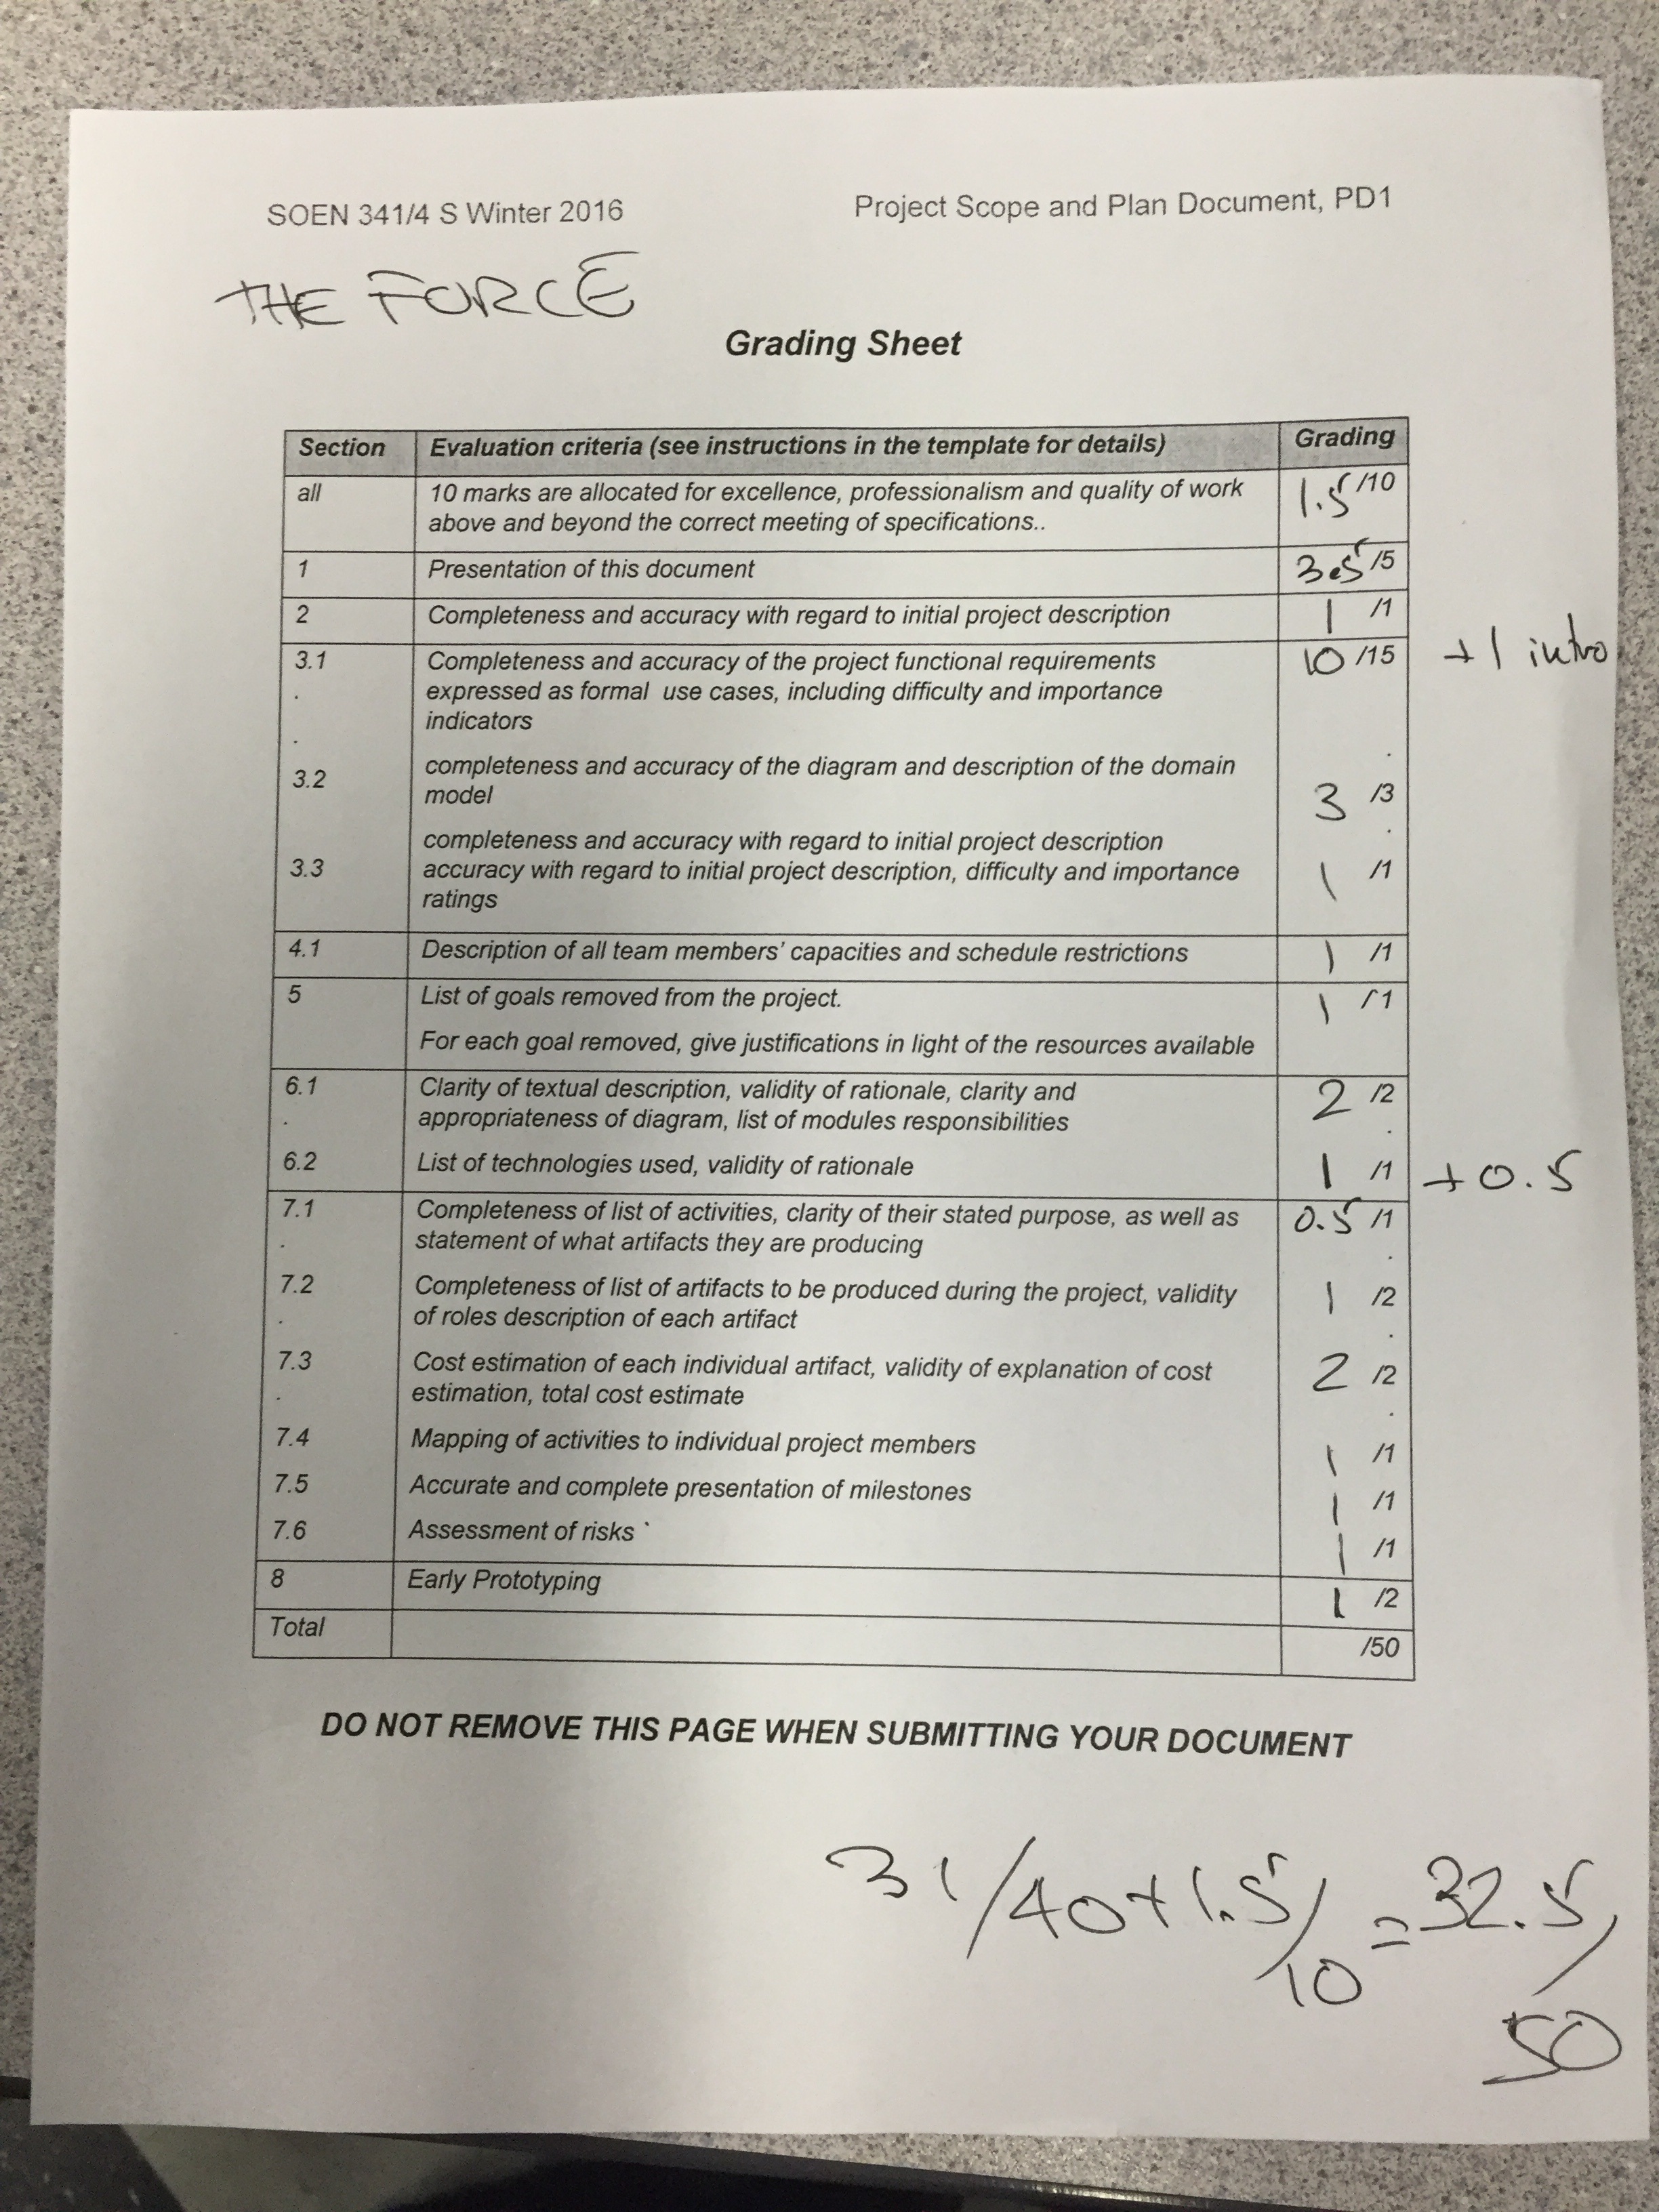 SOEN 341/4 S Winter 2016 Project Scope and Plan Document, PD1
THE FORCE
Grading Sheet
Section Evaluation criteria (see instructions in the template for details) Grading
all 10 marks are allocated for excellence, professionalism and quality of work 1.5 /10
above and beyond the correct meeting of specifications..
1 Presentation of this document 3.5 /5
2 Completeness and accuracy with regard to initial project description 1 /1
3.1 Completeness and accuracy of the project functional requirements 10 /15 +1 intro
. expressed as formal use cases, including difficulty and importance
indicators
.
completeness and accuracy of the diagram and description of the domain .
3.2 model 3 /3
completeness and accuracy with regard to initial project description .
3.3 accuracy with regard to initial project description, difficulty and importance 1 /1
ratings
4.1 Description of all team members' capacities and schedule restrictions 1 /1
5 List of goals removed from the project. 1 /1
For each goal removed, give justifications in light of the resources available
6.1 Clarity of textual description, validity of rationale, clarity and 2 /2
. appropriateness of diagram, list of modules responsibilities .
6.2 List of technologies used, validity of rationale 1 /1 +0.5
7.1 Completeness of list of activities, clarity of their stated purpose, as well as 0.5 /1
. statement of what artifacts they are producing .
7.2 Completeness of list of artifacts to be produced during the project, validity 1 /2
. of roles description of each artifact .
7.3 Cost estimation of each individual artifact, validity of explanation of cost 2 /2
. estimation, total cost estimate .
7.4 Mapping of activities to individual project members 1 /1
7.5 Accurate and complete presentation of milestones 1 /1
7.6 Assessment of risks 1 /1
8 Early Prototyping 1 /2
Total /50
DO NOT REMOVE THIS PAGE WHEN SUBMITTING YOUR DOCUMENT
31/40+1.5/10=32.5/50